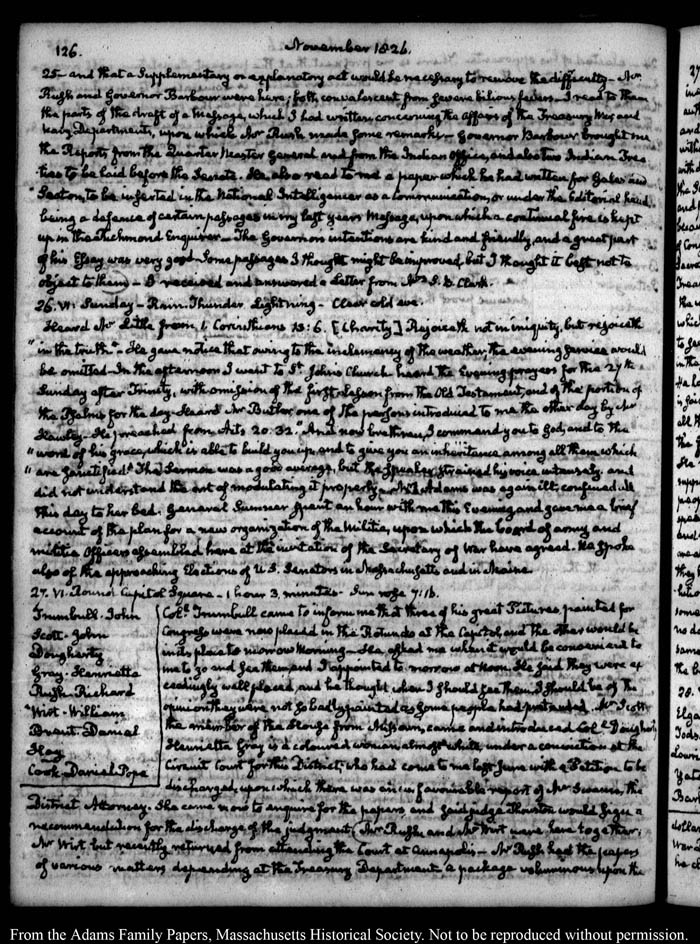 126.
November 1826.
25 - and that a Supplementary or explanatory act would be necessary to remove the difficulty - Mr
Rush and Governor Barbour were here; both convalescent from severe bilious fevers - I read to them
the parts of the draft of a Message, which I had written concerning the affairs of the Treasury War and
Navy Departments, upon which Mr Rush made some remarks - Governor Barbour brought me
the Reports from the Quarter Master General and from the Indian Office, and also two Indian Trea
ties to be laid before the Senate. He also read to me a paper which he had written for Gales and
Seaton, to be inserted in the National Intelligencer as a Communication, or under the Editorial head
being a defence of certain passages in my last years Message, upon which a continual fire is kept
up in the Richmond Enquirer - The Governors intentions are kind and friendly, and a great part
of his Essay was very good. Some passages I thought might be improved, but I thought it best not to
object to them - I received and answered a Letter from Mrs Clark.
26. VI. Sunday - Rain. Thunder Lightning - Clear cold eve.
Heard Mr Little from 1. Corinthians 13:6. [Charity] Rejoiceth not in iniquity, but rejoiceth
" in the truth" - He gave notice that owing to the inclemency of the weather, the evening service would
be omitted - In the afternoon I went to St. Johns Church heard the Evening prayers for the 27th
Sunday after Trinity, with omission of the first Lesson from the Old Testament, and of the portion of
the Psalms for the day - Heard Mr Butler, one of the persons introduced to me the other day by Mr
Hawley - He preached from Acts 20.32. "And now brethren, I commend you to God, and to the
" word of his grace, which is able to build you up, and to give you an inheritance among all them which
" are sanctified." The Sermon was a good average, but the Speaker strained his voice intensely and
did not understand the art of modulating it properly - Mrs Adams was again ill, confined all
this day to her bed. General Sumner spent an hour with me this Evening and gave me a brief
account of the plan for a new organization of the Militia, upon which the board of army and
militia Officers assembled here at the invitation of the Secretary of War have agreed. He spoke
also of the approaching Elections of U.S. Senators in Massachusetts and in Maine.
27. VI. Round Capitol Square - 1 hour 3 minutes - Sun rose 7:16.
Trumbull. John
Scott - John
Dougherty
Gray. Henrietta
Rush Richard
Wirt - William
Brent - Daniel
Hay
Cook Daniel Pope
Coll. Trumbull came to inform me that three of his great Pictures, painted for
Congress were now placed in the Rotundo at the Capitol, and the other would be
in its place to morrow Morning - He asked me when it would be convenient to
me to go and see them, and I appointed to morrow at Noon. He said they were ex
ceedingly well placed, and he thought when I should see them I should be of the
opinion they were not so badly painted as some people had pretended. Mr Scott
the member of the House from Missouri, came and introduced Coll. Dougherty
Henrietta Gray is a coloured woman almost white, under a conviction at the
Circuit Court for this District, who had come to me last June with a Petition to be
discharged, upon which there was an unfavourable report of Mr Swann, the
District Attorney. She came now to enquire for the papers and said judge Thruston would sign a
recommendation for the discharge of the judgment. Mr Rush, and Mr Wirt were here together;
Mr Wirt but recently returned from attending the Court at Annapolis - Mr Rush had the papers
of various matters depending at the Treasury Department - a package voluminous upon the
From the Adams Family Papers, Massachusetts Historical Society. Not to be reproduced without permission